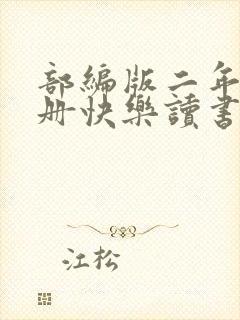 部編版二年
册快樂讀書
江松